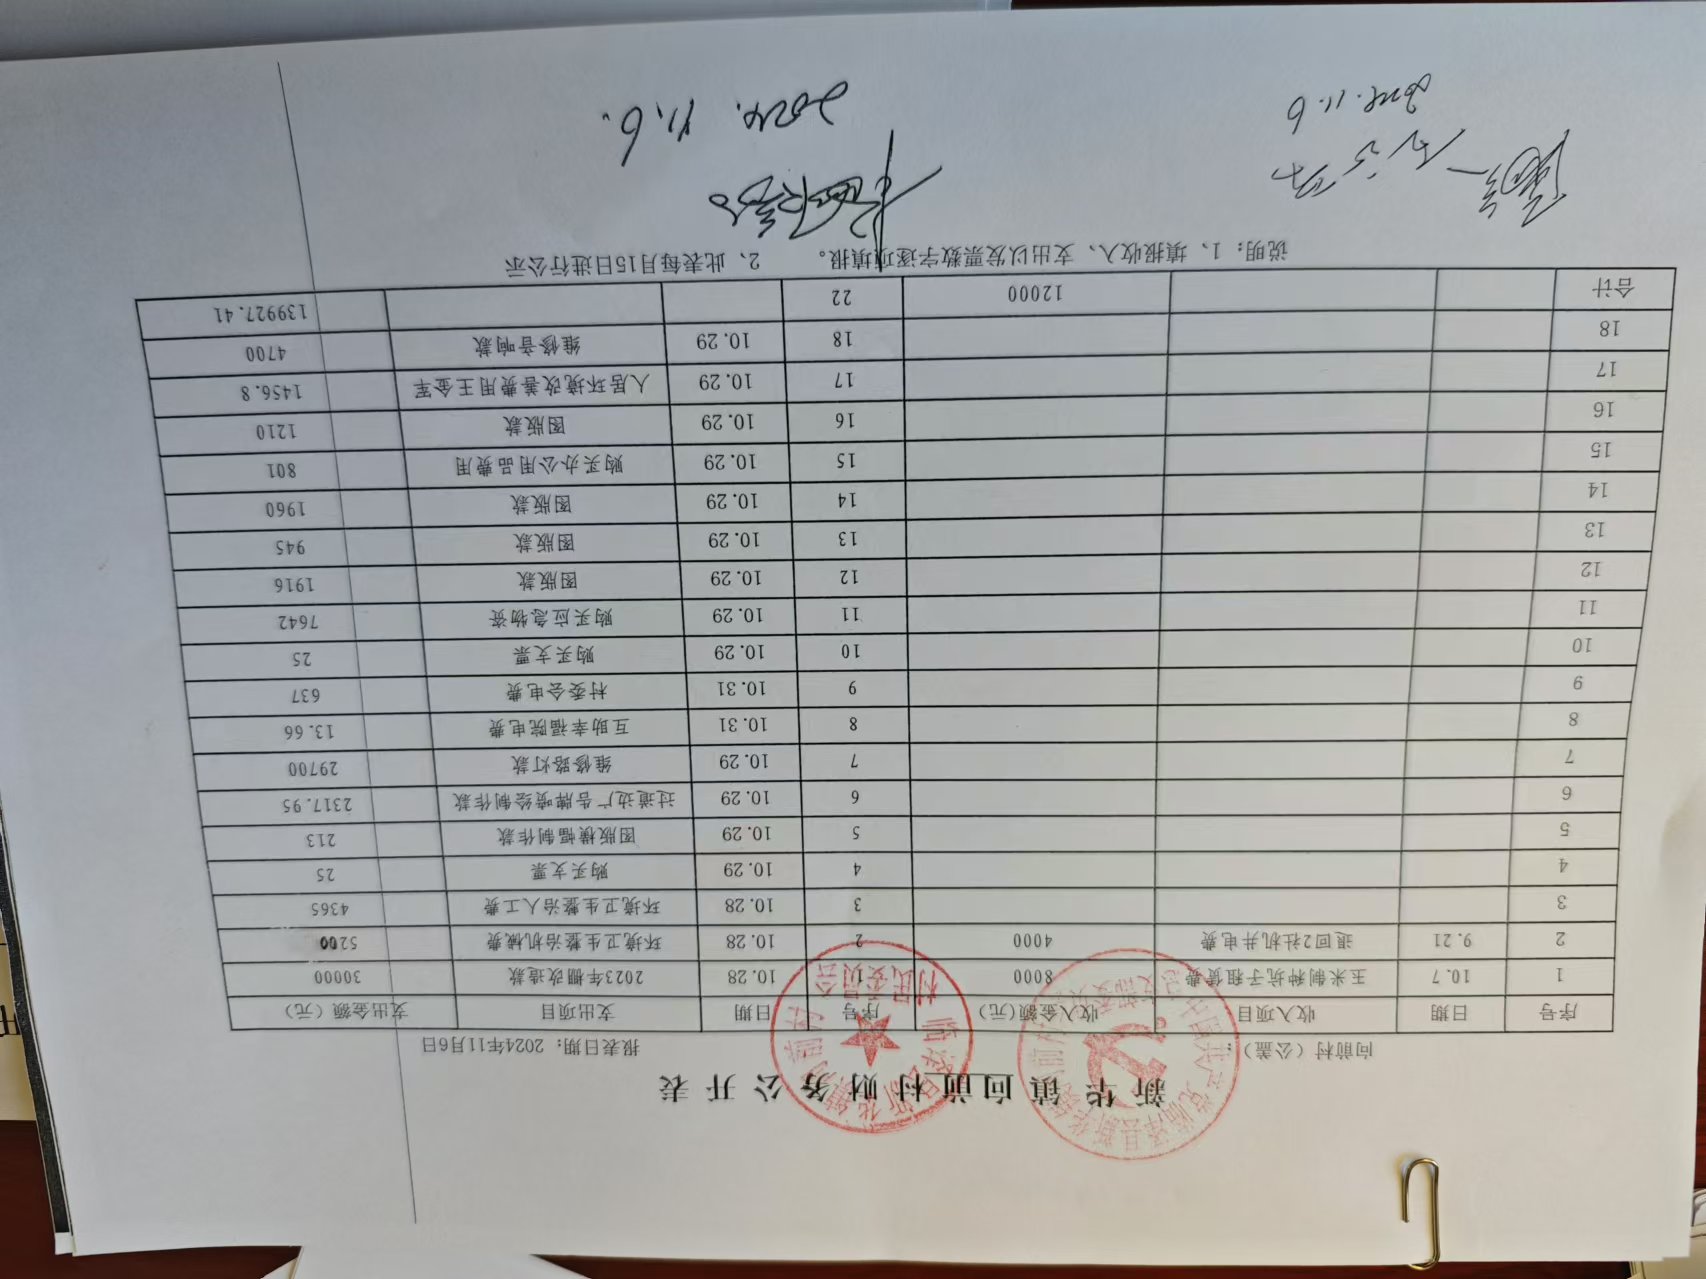 新华镇向前村财务公开表
向前村（公盖） 报表日期：2024年11月6日
序号 日期 收入项目 收入金额(元) 序号 日期 支出项目 支出金额（元）
1 10.7 玉米制种坑子租赁费 8000 1 10.28 2023年棚改造款 30000
2 9.21 退回2社机井电费 4000 2 10.28 环境卫生整治机械费 5200
3 3 10.28 环境卫生整治人工费 4365
4 4 10.29 购买支票 25
5 5 10.29 图版横幅制作款 213
6 6 10.29 过道边广告牌喷绘制作款 2317.95
7 7 10.29 维修路灯款 29700
8 8 10.31 互助幸福院电费 13.66
9 9 10.31 村委会电费 637
10 10 10.29 购买支票 25
11 11 10.29 购买应急物资 7642
12 12 10.29 图版款 1916
13 13 10.29 图版款 945
14 14 10.29 图版款 1960
15 15 10.29 购买办公用品费用 801
16 16 10.29 图版款 1210
17 17 10.29 人居环境改善费用王金军 1456.8
18 18 10.29 维修音响款 4700
合计 12000 22 139927.41
说明：1、填报收入、支出以发票数字逐项填报。 2、此表每月15日进行公示
2024.11.6 2024.11.6.